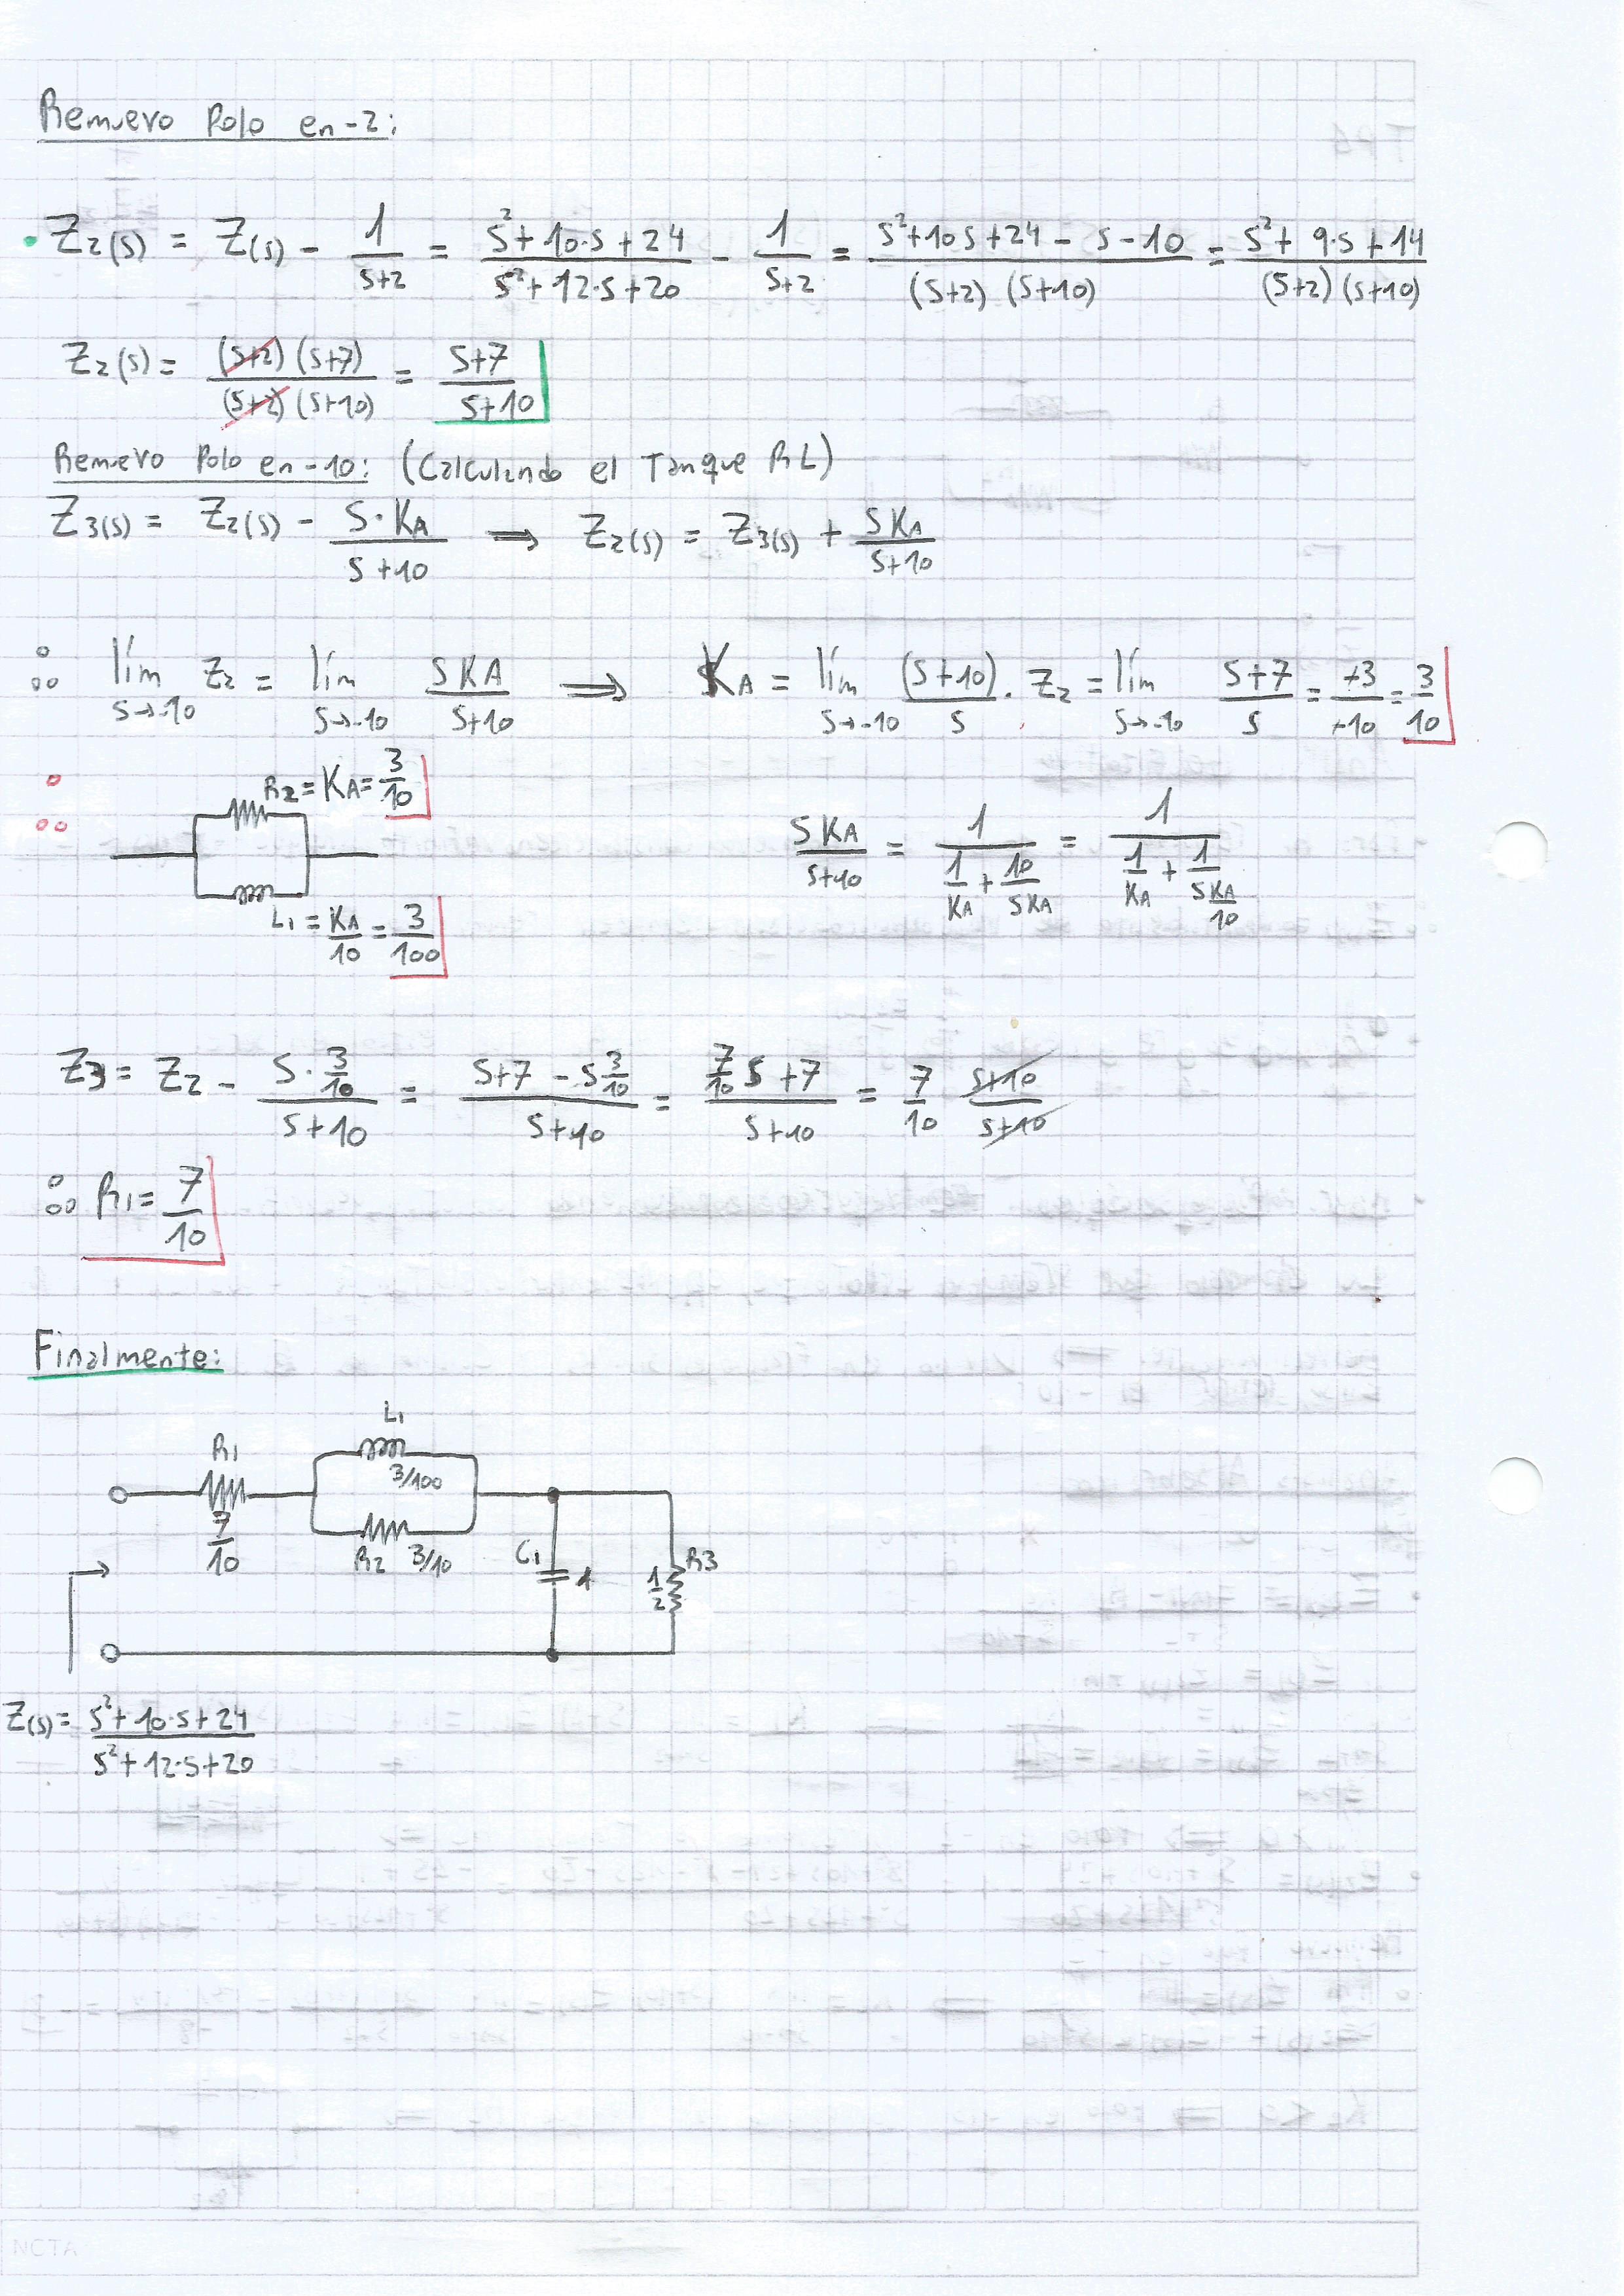 Remuevo Polo en -2:
Z2(s) = Z(s) - 1/(s+2) = (s²+10·s+24)/(s²+12·s+20) - 1/(s+2) = (s²+10s+24-s-10)/((s+2)(s+10)) = (s²+9·s+14)/((s+2)(s+10))
Z2(s) = ((s+2)(s+7))/((s+2)(s+10)) = (s+7)/(s+10)
Remuevo Polo en -10: (Calculando el Tanque RL)
Z3(s) = Z2(s) - (s·KA)/(s+10) ⟹ Z2(s) = Z3(s) + (sKA)/(s+10)
∴ lím s→-10 Z2 = lím s→-10 (sKA)/(s+10) ⟹ KA = lím s→-10 (s+10)/s · Z2 = lím s→-10 (s+7)/s = -3/-10 = 3/10
∴ R2 = KA = 3/10
(sKA)/(s+10) = 1/(1/KA + 10/(sKA)) = 1/(1/KA + 1/(sKA/10))
L1 = KA/10 = 3/100
Z3 = Z2 - (s·3/10)/(s+10) = (s+7-s3/10)/(s+10) = (7/10 s+7)/(s+10) = 7/10 (s+10)/(s+10)
∴ R1 = 7/10
Finalmente:
L1
R1
3/100
7/10
R2 3/10
C1 1
1/2 R3
Z(s) = (s²+10·s+24)/(s²+12·s+20)
NOTA